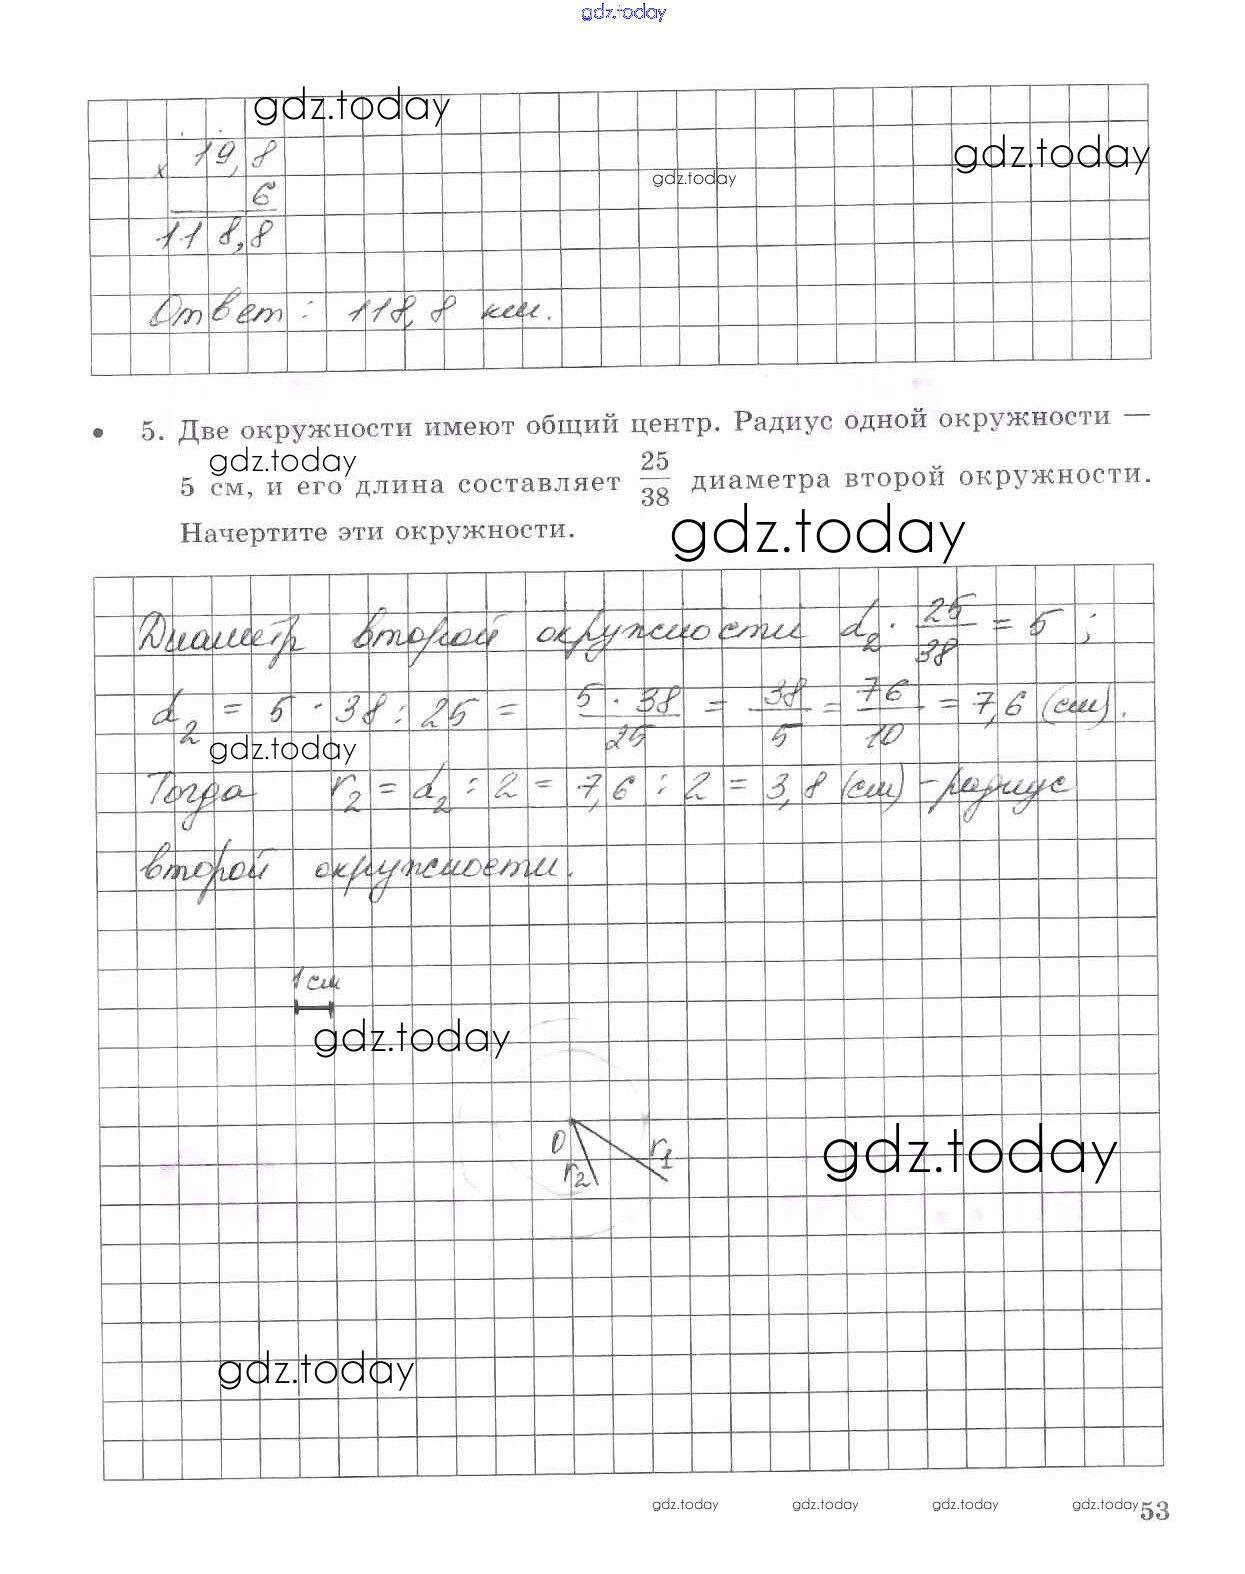 gdz.today
gdz.today
gdz.today
gdz.today
× 19,8
6
118,8
Ответ: 118,8 км.
5. Две окружности имеют общий центр. Радиус одной окружности —
gdz.today
5 см, и его длина составляет 25/38 диаметра второй окружности.
Начертите эти окружности.
gdz.today
Диаметр второй окружности d₂ · 25/38 = 5;
d₂ = 5 · 38 : 25 = 5 · 38/25 = 38/5 = 76/10 = 7,6 (см).
gdz.today
Тогда r₂ = d₂ : 2 = 7,6 : 2 = 3,8 (см) – радиус
второй окружности.
1 см
gdz.today
O
r₂
r₁
gdz.today
gdz.today
gdz.today gdz.today gdz.today gdz.today 53